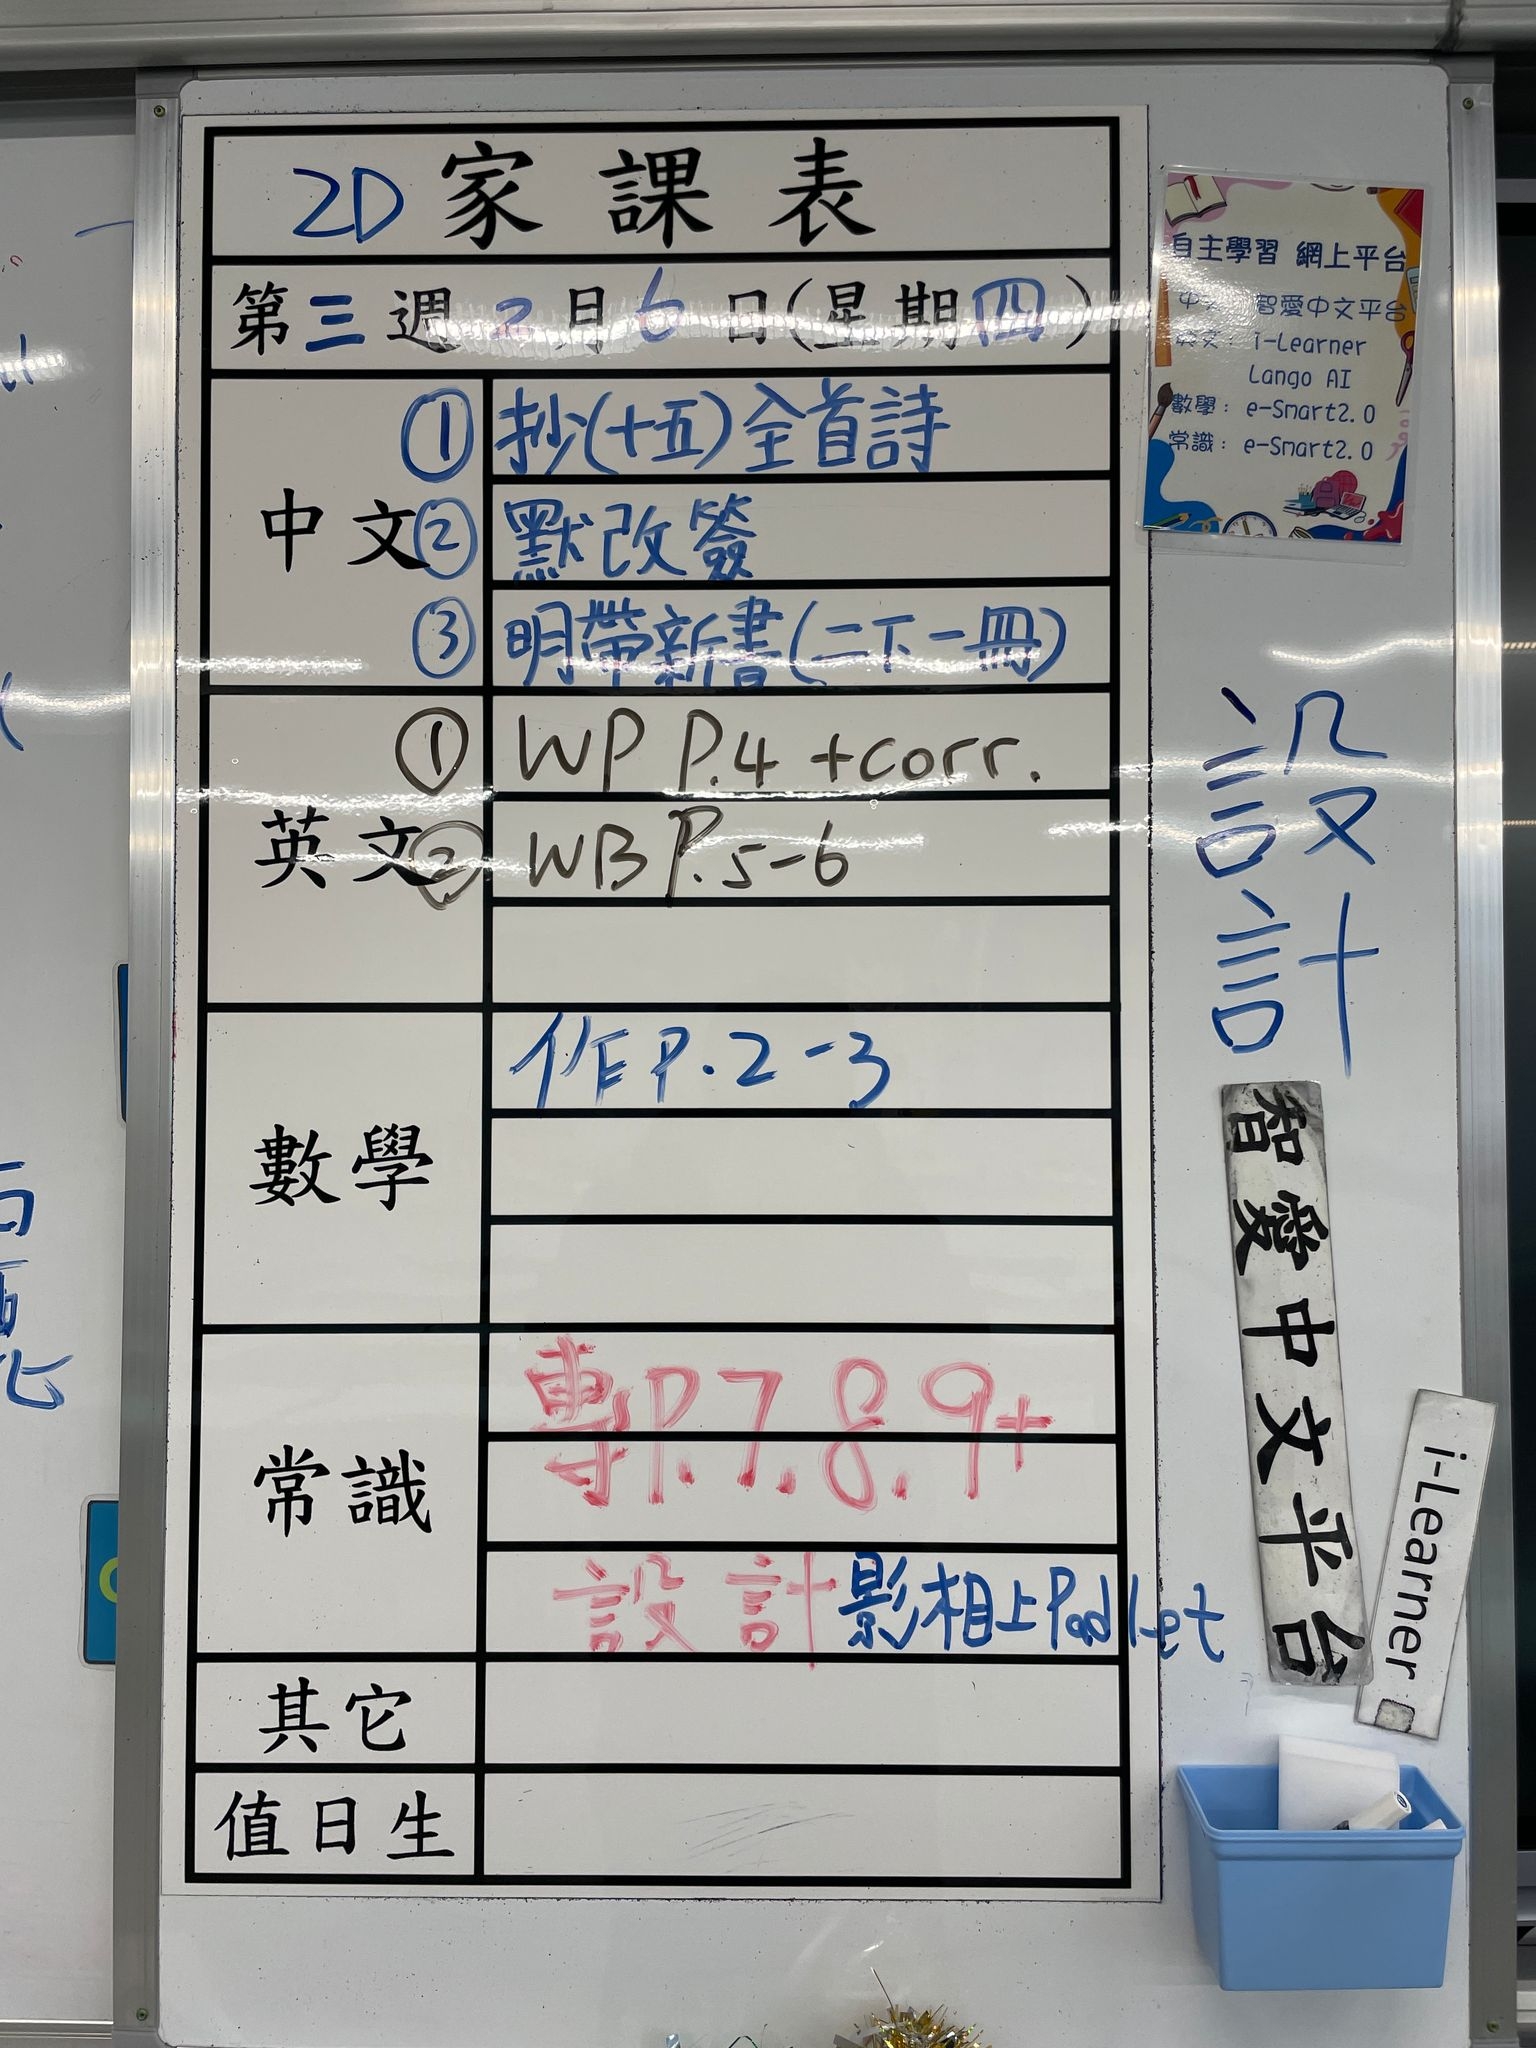 2D 家課表
第三週 2月6日(星期四)
中文
① 抄(十五)全首詩
② 默改簽
③ 明帶新書(二下一冊)
英文
① WP P.4 +corr.
② WB P.5-6
數學
作P.2-3
常識
專P.7.8.9+
設計影相上Padlet
其它
值日生
自主學習 網上平台
中文: 智愛中文平台
英文: i-Learner
Lango AI
數學: e-Smart2.0
常識: e-Smart2.0
設計
智愛中文平台
i-Learner